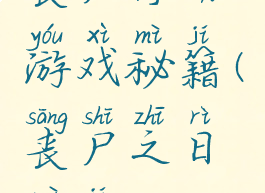 yóu xì mì jí
游戏秘籍(
sāng shī zhī rì
丧尸之日